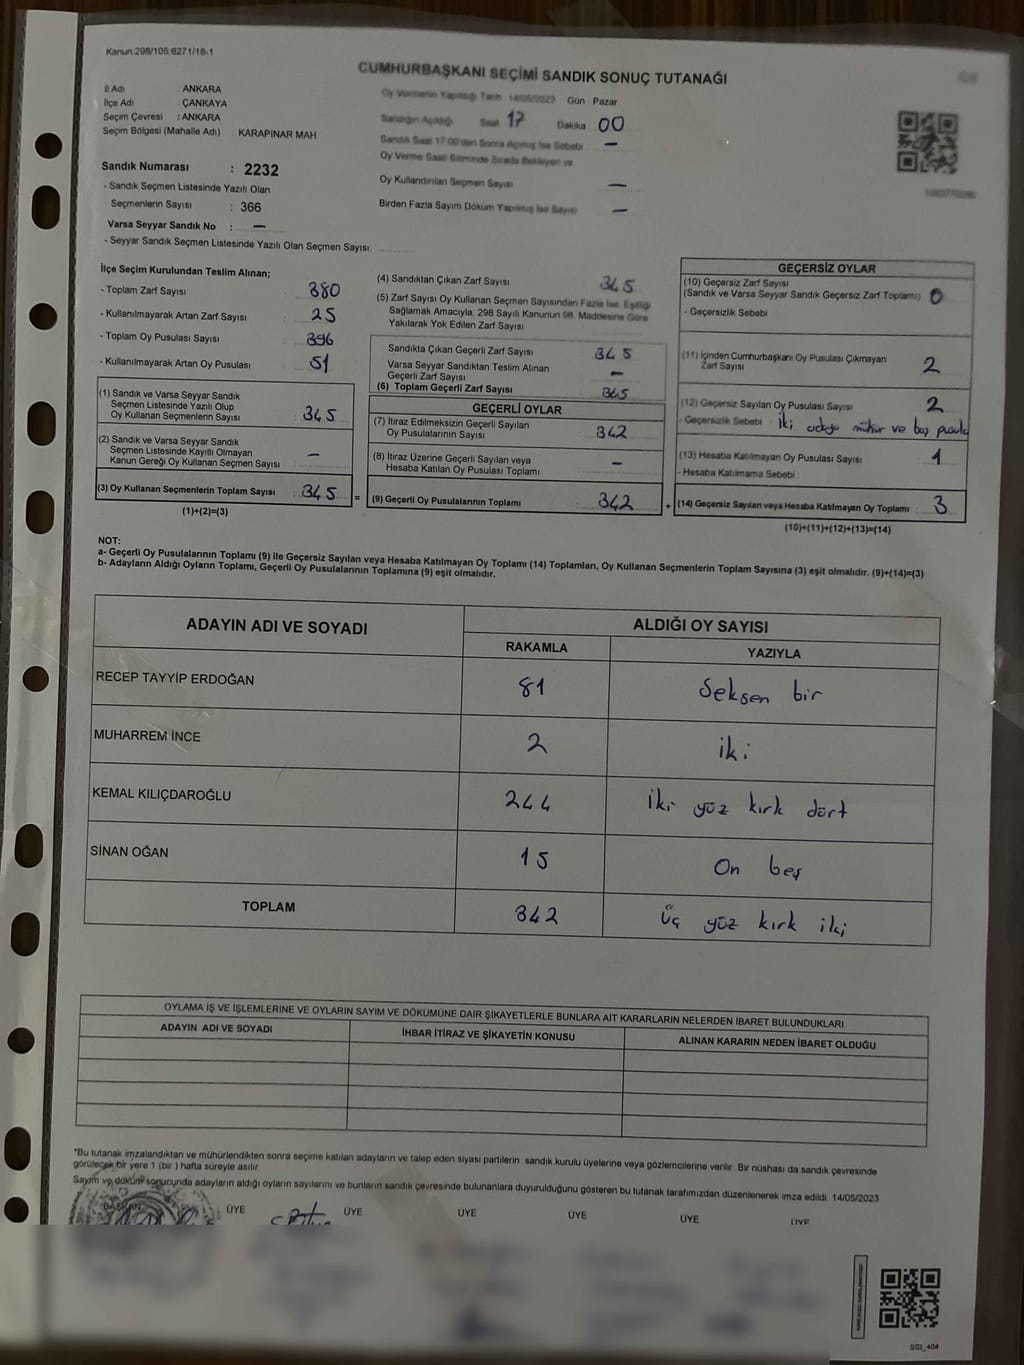 Kanun:298/105:6271/18-1
CUMHURBAŞKANI SEÇİMİ SANDIK SONUÇ TUTANAĞI
İl Adı ANKARA
İlçe Adı : ÇANKAYA
Seçim Çevresi : ANKARA
Seçim Bölgesi (Mahalle Adı) : KARAPINAR MAH
Sandık Numarası : 2232
- Sandık Seçmen Listesinde Yazılı Olan
Seçmenlerin Sayısı : 366
Varsa Seyyar Sandık No : —
- Seyyar Sandık Seçmen Listesinde Yazılı Olan Seçmen Sayısı:
Oy Vermenin Yapıldığı Tarih 14/05/2023 Gün Pazar
Sandığın Açıldığı Saat 17 Dakika 00
Sandık Saat 17:00'den Sonra Açılmış İse Sebebi —
Oy Verme Saati Bitiminde Sırada Bekleyen ve
Oy Kullandırılan Seçmen Sayısı —
Birden Fazla Sayım Döküm Yapılmış İse Sayısı —
İlçe Seçim Kurulundan Teslim Alınan;
- Toplam Zarf Sayısı : 380
- Kullanılmayarak Artan Zarf Sayısı : 25
- Toplam Oy Pusulası Sayısı : 396
- Kullanılmayarak Artan Oy Pusulası : 51
(1) Sandık ve Varsa Seyyar Sandık
Seçmen Listesinde Yazılı Olup
Oy Kullanan Seçmenlerin Sayısı : 345
(2) Sandık ve Varsa Seyyar Sandık
Seçmen Listesinde Kayıtlı Olmayan
Kanun Gereği Oy Kullanan Seçmen Sayısı : —
(3) Oy Kullanan Seçmenlerin Toplam Sayısı : 345 =
(1)+(2)=(3)
(4) Sandıktan Çıkan Zarf Sayısı 345
(5) Zarf Sayısı Oy Kullanan Seçmen Sayısından Fazla İse, Eşitliği
Sağlamak Amacıyla, 298 Sayılı Kanunun 98. Maddesine Göre
Yakılarak Yok Edilen Zarf Sayısı
Sandıkta Çıkan Geçerli Zarf Sayısı : 345
Varsa Seyyar Sandıktan Teslim Alınan
Geçerli Zarf Sayısı : —
(6) Toplam Geçerli Zarf Sayısı : 345
GEÇERLİ OYLAR
(7) İtiraz Edilmeksizin Geçerli Sayılan
Oy Pusulalarının Sayısı : 342
(8) İtiraz Üzerine Geçerli Sayılan veya
Hesaba Katılan Oy Pusulası Toplamı : —
(9) Geçerli Oy Pusulalarının Toplamı : 342 +
GEÇERSİZ OYLAR
(10) Geçersiz Zarf Sayısı
(Sandık ve Varsa Seyyar Sandık Geçersiz Zarf Toplamı) : 0
- Geçersizlik Sebebi :
(11) İçinden Cumhurbaşkanı Oy Pusulası Çıkmayan
Zarf Sayısı : 2
(12) Geçersiz Sayılan Oy Pusulası Sayısı : 2
- Geçersizlik Sebebi : iki adaya mühür ve boş pusula
(13) Hesaba Katılmayan Oy Pusulası Sayısı : 1
- Hesaba Katılmama Sebebi :
(14) Geçersiz Sayılan veya Hesaba Katılmayan Oy Toplamı : 3
(10)+(11)+(12)+(13)=(14)
NOT:
a- Geçerli Oy Pusulalarının Toplamı (9) ile Geçersiz Sayılan veya Hesaba Katılmayan Oy Toplamı (14) Toplamları, Oy Kullanan Seçmenlerin Toplam Sayısına (3) eşit olmalıdır. (9)+(14)=(3)
b- Adayların Aldığı Oyların Toplamı, Geçerli Oy Pusulalarının Toplamına (9) eşit olmalıdır.
ADAYIN ADI VE SOYADI ALDIĞI OY SAYISI
RAKAMLA YAZIYLA
RECEP TAYYİP ERDOĞAN 81 Seksen bir
MUHARREM İNCE 2 iki
KEMAL KILIÇDAROĞLU 244 İki yüz kırk dört
SİNAN OĞAN 15 On beş
TOPLAM 342 Üç yüz kırk iki
OYLAMA İŞ VE İŞLEMLERİNE VE OYLARIN SAYIM VE DÖKÜMÜNE DAİR ŞİKAYETLERLE BUNLARA AİT KARARLARIN NELERDEN İBARET BULUNDUKLARI
ADAYIN ADI VE SOYADI İHBAR İTİRAZ VE ŞİKAYETİN KONUSU ALINAN KARARIN NEDEN İBARET OLDUĞU
*Bu tutanak imzalandıktan ve mühürlendikten sonra seçime katılan adayların ve talep eden siyasi partilerin sandık kurulu üyelerine veya gözlemcilerine verilir. Bir nüshası da sandık çevresinde
görülecek bir yere 1 (bir) hafta süreyle asılır.
Sayım ve döküm sonucunda adayların aldığı oyların sayılarını ve bunların sandık çevresinde bulunanlara duyurulduğunu gösteren bu tutanak tarafımızdan düzenlenerek imza edildi. 14/05/2023
BAŞKAN ÜYE ÜYE ÜYE ÜYE ÜYE ÜYE
SSI_404